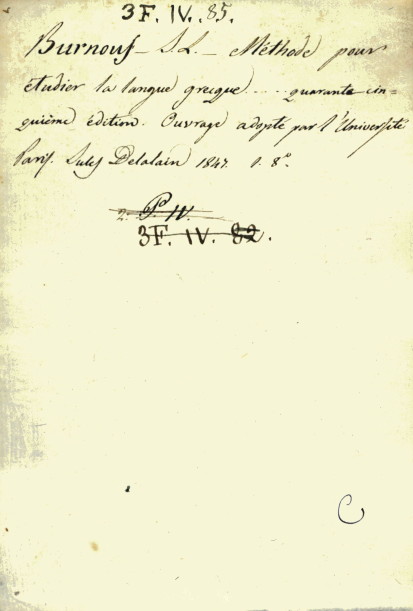 3F. IV. 85.
Burnouf - J L - Méthode pour
étudier la langue grecque .... quarante cin=
quième édition. Ouvrage adopté par l'Université
Paris. Jules Delalain 1847. 1. 8°.
2. P° IV.
3F. IV. 82.
C